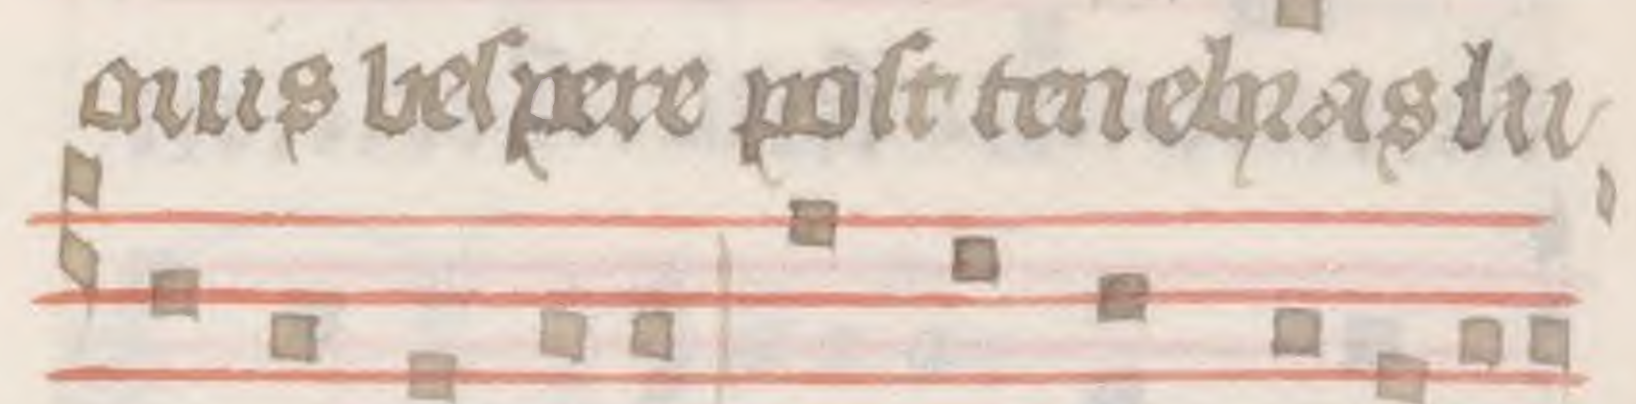 quus vespere post tenebras lu